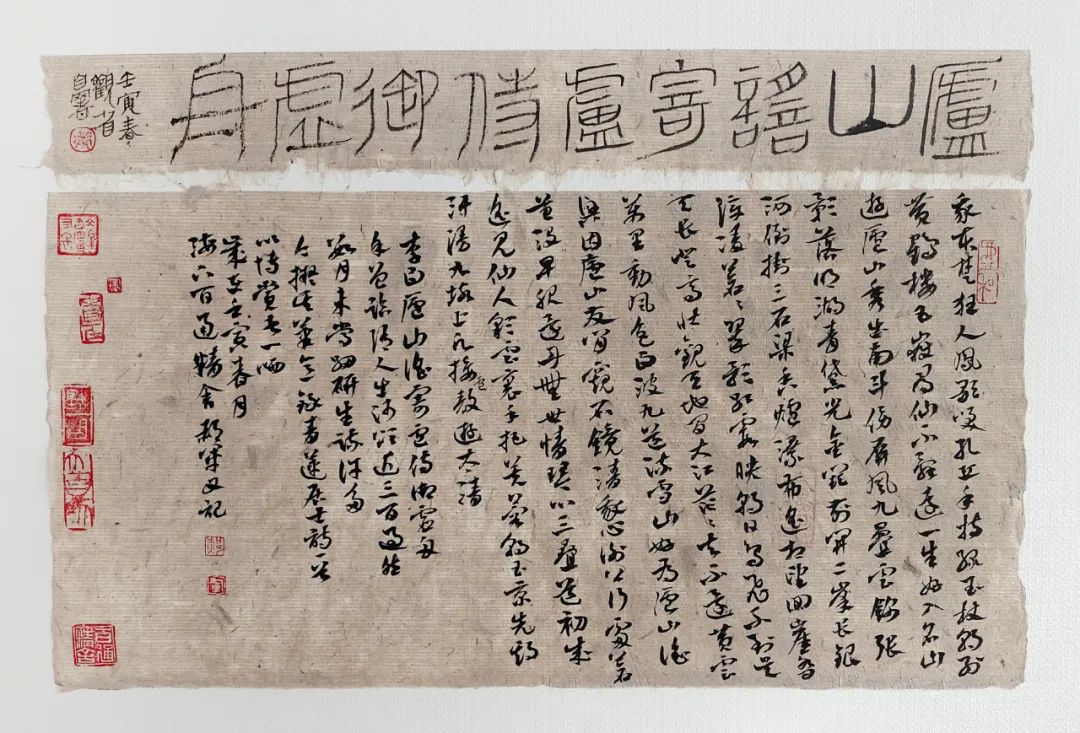 廬山謠寄盧侍御虛舟
壬寅春
觀省
自署
我本楚狂人鳳歌笑孔丘手持綠玉杖朝別
黃鶴樓五嶽尋仙不辭遠一生好入名山
遊廬山秀出南斗傍屏風九疊雲錦張
影落明湖青黛光金闕前開二峯長銀
河倒掛三石梁香爐瀑布遙相望回崖沓
嶂凌蒼々翠影紅霞映朝日鳥飛不到吳
天長登高壯觀天地間大江茫々去不還黃雲
萬里動風色白波九道流雪山好為廬山謠
興因廬山發閒窺石鏡清我心謝公行處蒼
苔沒早服還丹無世情琴心三疊道初成
遙見仙人彩雲裏手把芙蓉朝玉京先期
汗漫九垓上願接盧敖遊太清
李白廬山謠寄盧侍御虛舟
余曾臨隋人出師頌近三百過然
數月未嘗細研生疏許多
今擬其筆意錄青蓮居士詩一首
以博賞者一哂
歲在壬寅春月
六百過精舍又記